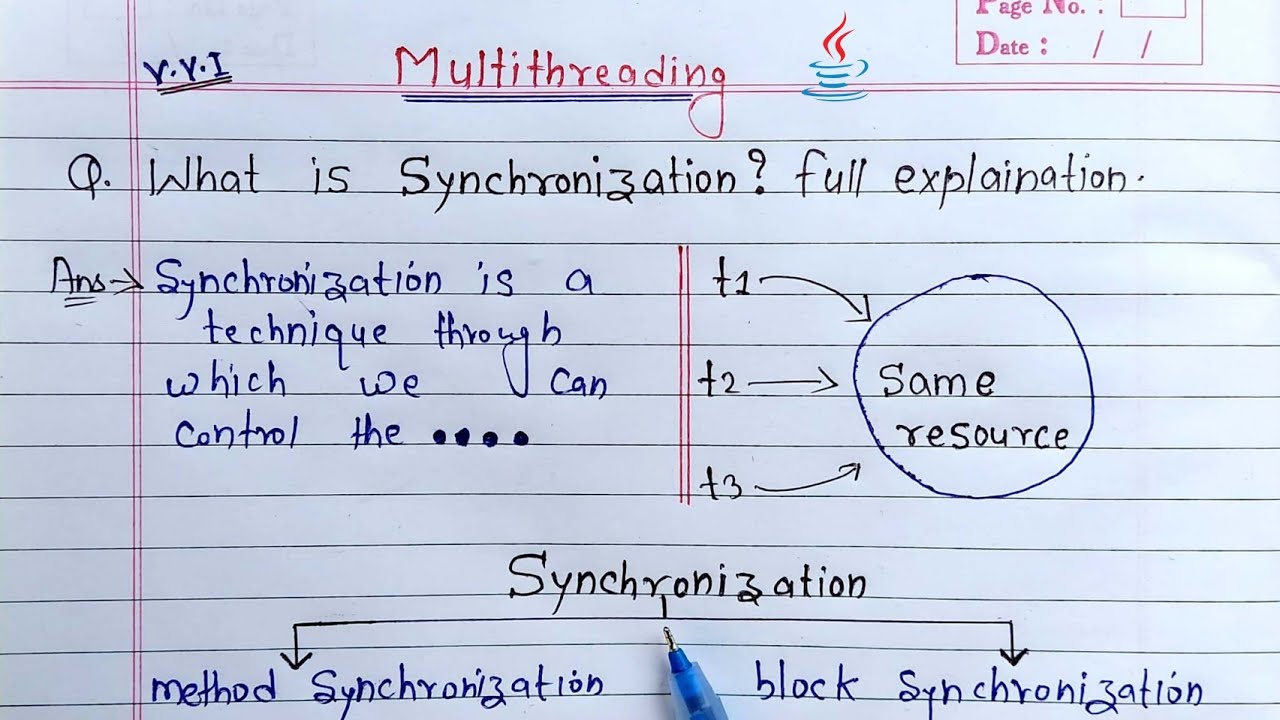 Page No. :
Date : / /
V.V.I
Multithreading
Q. What is Synchronization? full explaination.
Ans→ Synchronization is a
technique through
which we can
control the ••••
t1
t2
t3
Same
resource
Synchronization
method Synchronization
block Synchronization